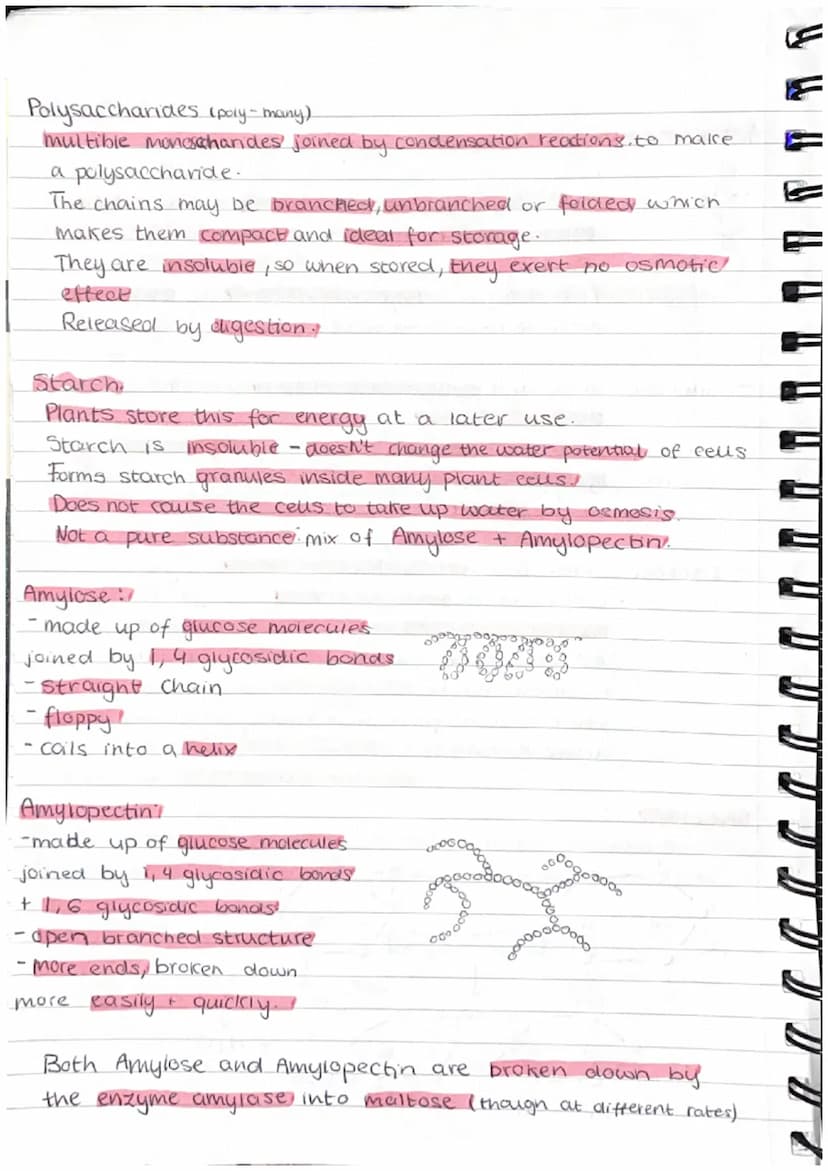 Polysaccharides (poly-many)
multible monoscharides joined by condensation reactions, to make
a polysaccharide.
The chains may be branched, unbranched or folded which
makes them compact and ideal for storage.
They are insoluble, so when stored, they exert no osmotic
effect
Released by digestion.
Starch
Plants store this for energy at a later use.
Starch is insoluble - doesn't change the water potential of cells
Forms starch granules inside many plant cells.
Does not cause the cells to take up water by osmosis.
Not a pure substance: mix of Amylose + Amylopectin.
Amylose:
- made up of glucose molecules
joined by 1,4 glycosidic bonds
- straight chain
- floppy
- coils into a helix
Amylopectin:
- made up of glucose molecules
joined by 1,4 glycosidic bonds
+ 1,6 glycosidic bonds
- open branched structure
- more ends, broken down
more easily + quickly.
Both Amylose and Amylopectin are broken down by
the enzyme amylase into maltose (though at different rates)